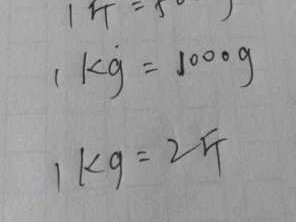 1斤=50 g
1 kg = 1000g
1 kg = 2斤